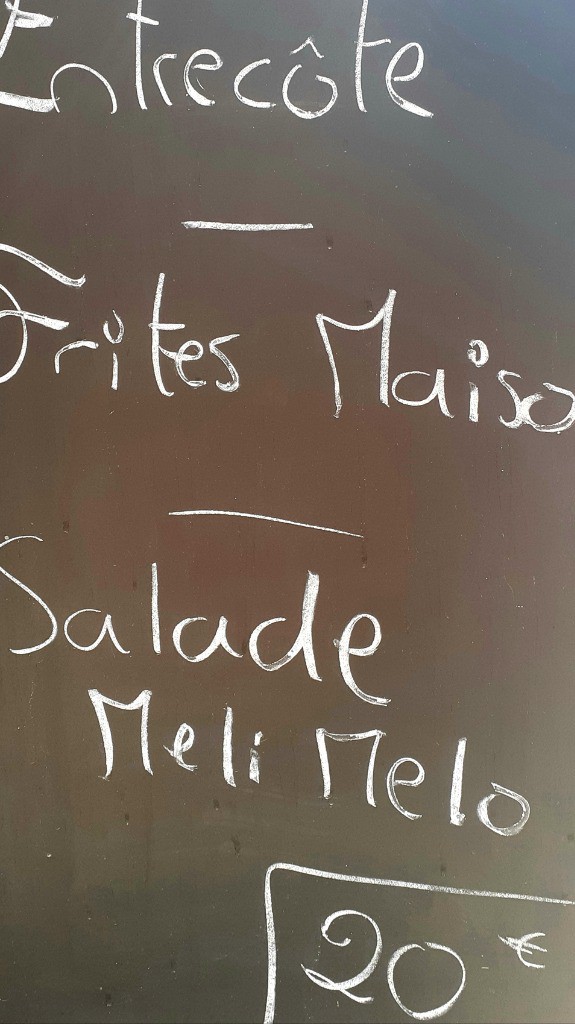 Entrecôte
Frites Maiso
Salade
Meli Melo
20 €